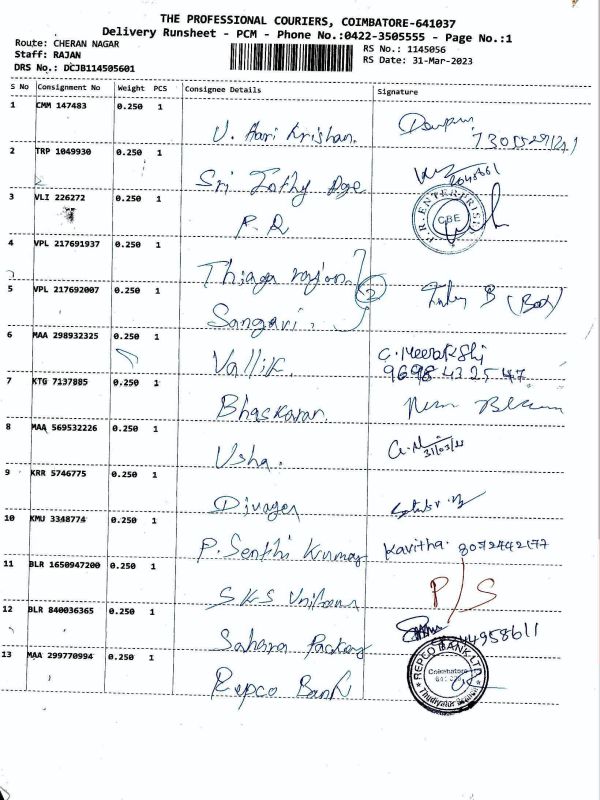 THE PROFESSIONAL COURIERS, COIMBATORE-641037
Delivery Runsheet - PCM - Phone No.:0422-3505555 - Page No.:1
Route: CHERAN NAGAR
RS No.: 1145056
Staff: RAJAN
RS Date: 31-Mar-2023
DRS No.: DCJB114505601
S No Consignment No Weight PCS Consignee Details Signature
1 CMM 147483 0.250 1
V. Hari Krishan.
2 TRP 1049930 0.250 1
Sri Jothy
3 VLI 226272 0.250 1
P.R
P.R. ENTERPRISES
CBE
4 VPL 217691937 0.250 1
Thiaga rajan
2
5 VPL 217692007 0.250 1
Sangavi. B (Box)
6 MAA 298932325 0.250 1
Vallik. C. Meenakshi
9698432547
7 KTG 7137885 0.250 1
Bhaskaran.
8 MAA 569532226 0.250 1
Usha.
31/03/23
9 KRR 5746775 0.250 1
Divagen
10 KMU 3348774 0.250 1
P. Senthi Kumar Kavitha. 8072442177
11 BLR 1650947200 0.250 1
S.K.S Uniforms P/S
12 BLR 840036365 0.250 1
Sahara Packag 44958611
13 MAA 299770994 0.250 1
Repco Bank
REPCO BANK LTD
Coimbatore
Thudiyalur Branch